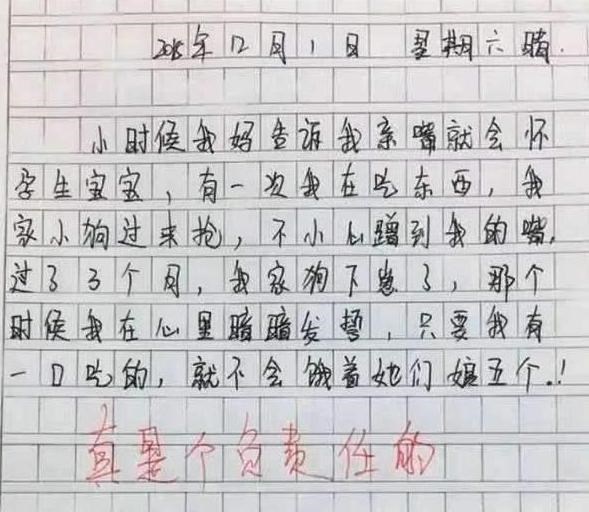 2018年12月1日 星期六 晴.
小时候我妈告诉我亲嘴就会怀
孕生宝宝，有一次我在吃东西，我
家小狗过来抢，不小心蹭到我的嘴，
过了3个月，我家狗下崽了，那个
时候我在心里暗暗发誓，只要我有
一口吃的，就不会饿着她们娘五个.！
真是个负责任的